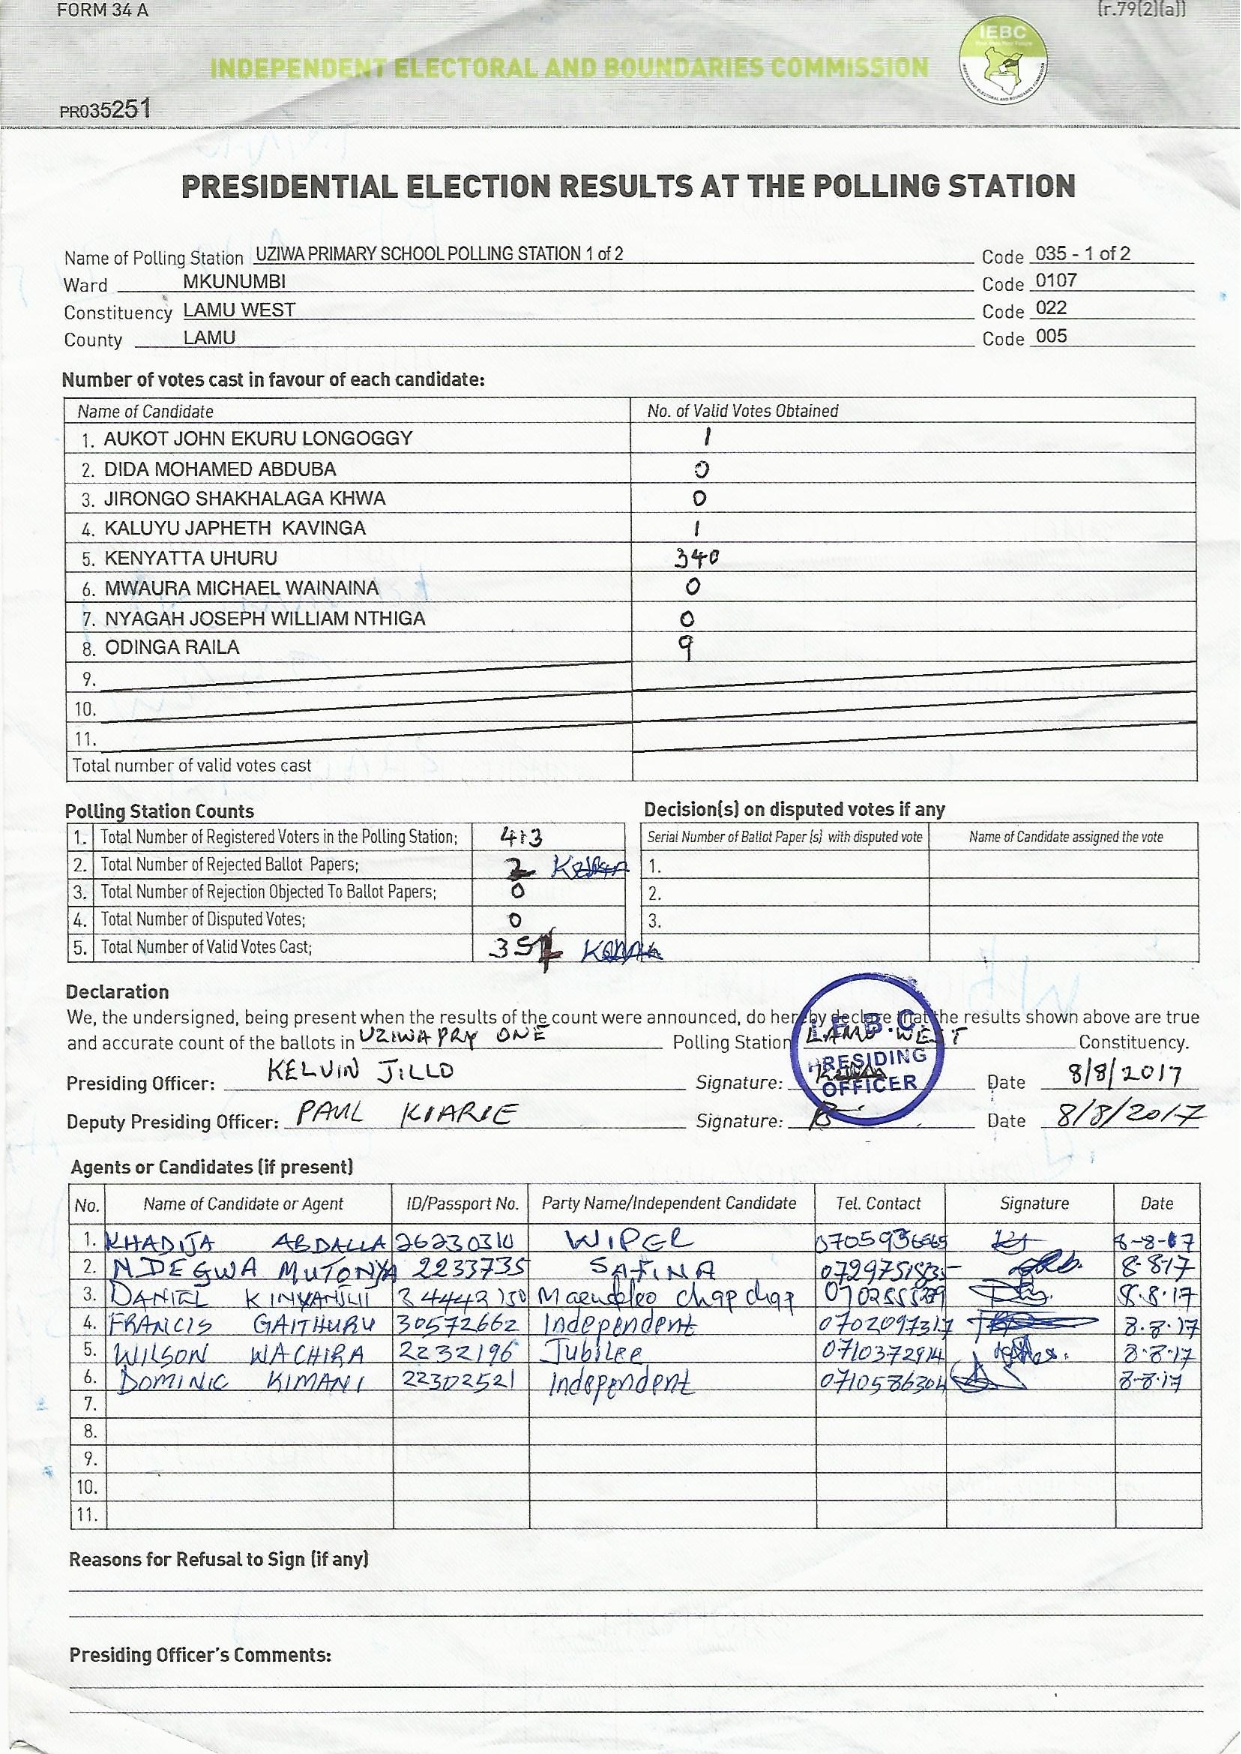 FORM 34 A
[r.79(2)(a)]
IEBC
INDEPENDENT ELECTORAL AND BOUNDARIES COMMISSION
PR035251
PRESIDENTIAL ELECTION RESULTS AT THE POLLING STATION
Name of Polling Station UZIWA PRIMARY SCHOOL POLLING STATION 1 of 2 Code 035 - 1 of 2
Ward MKUNUMBI Code 0107
Constituency LAMU WEST Code 022
County LAMU Code 005
Number of votes cast in favour of each candidate:
Name of Candidate No. of Valid Votes Obtained
1. AUKOT JOHN EKURU LONGOGGY 1
2. DIDA MOHAMED ABDUBA 0
3. JIRONGO SHAKHALAGA KHWA 0
4. KALUYU JAPHETH KAVINGA 1
5. KENYATTA UHURU 340
6. MWAURA MICHAEL WAINAINA 0
7. NYAGAH JOSEPH WILLIAM NTHIGA 0
8. ODINGA RAILA 9
9.
10.
11.
Total number of valid votes cast
Polling Station Counts Decision(s) on disputed votes if any
1. Total Number of Registered Voters in the Polling Station; 413 Serial Number of Ballot Paper (s) with disputed vote Name of Candidate assigned the vote
2. Total Number of Rejected Ballot Papers; 2 1.
3. Total Number of Rejection Objected To Ballot Papers; 0 2.
4. Total Number of Disputed Votes; 0 3.
5. Total Number of Valid Votes Cast; 351
Declaration
We, the undersigned, being present when the results of the count were announced, do hereby declare that the results shown above are true
and accurate count of the ballots in UZIWA PRY ONE Polling Station LAMU WEST Constituency.
I.E.B.C. PRESIDING OFFICER
Presiding Officer: KELVIN JILLO Signature: Date 8/8/2017
Deputy Presiding Officer: PAUL KIARIE Signature: Date 8/8/2017
Agents or Candidates (if present)
No. Name of Candidate or Agent ID/Passport No. Party Name/Independent Candidate Tel. Contact Signature Date
1. KHADIJA ABDALLA 26230310 WIPER 8-8-17
2. NDEGWA MUTONYA 2233735 SAFINA 8-8-17
3. DANIEL KINYANJUI Maendeleo chap chap 8.8.17
4. FRANCIS GAITHURU 30572662 Independent 0702097317 8.8.17
5. WILSON WACHIRA 2232196 Jubilee 0710372914 8-8-17
6. DOMINIC KIMANI 22302521 Independent 0710586304 8-8-17
7.
8.
9.
10.
11.
Reasons for Refusal to Sign (if any)
Presiding Officer's Comments: